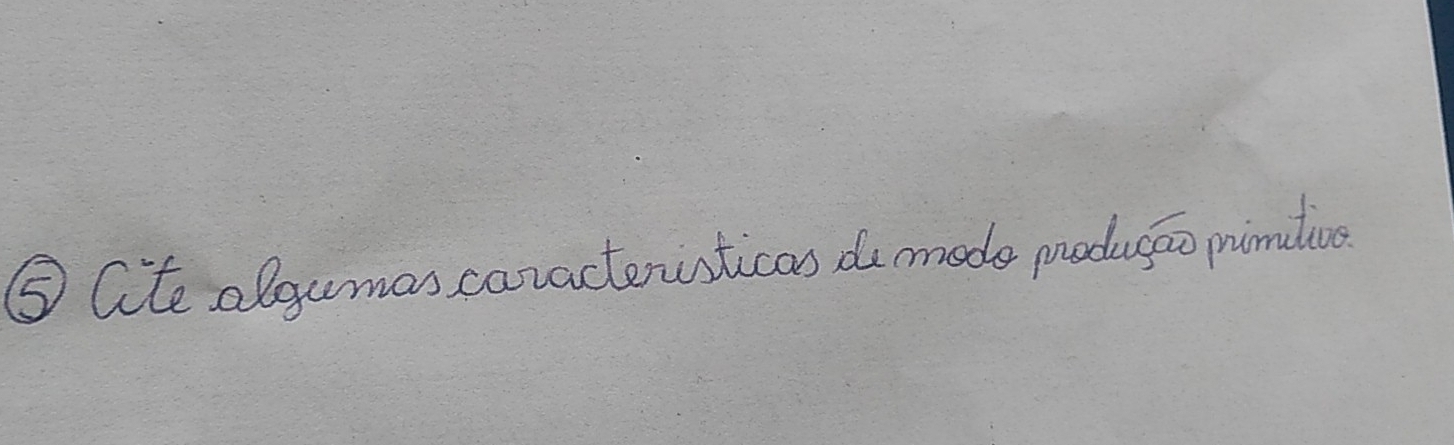 ⑤ Cite algumas caracteristicas de modo produção primitivo.